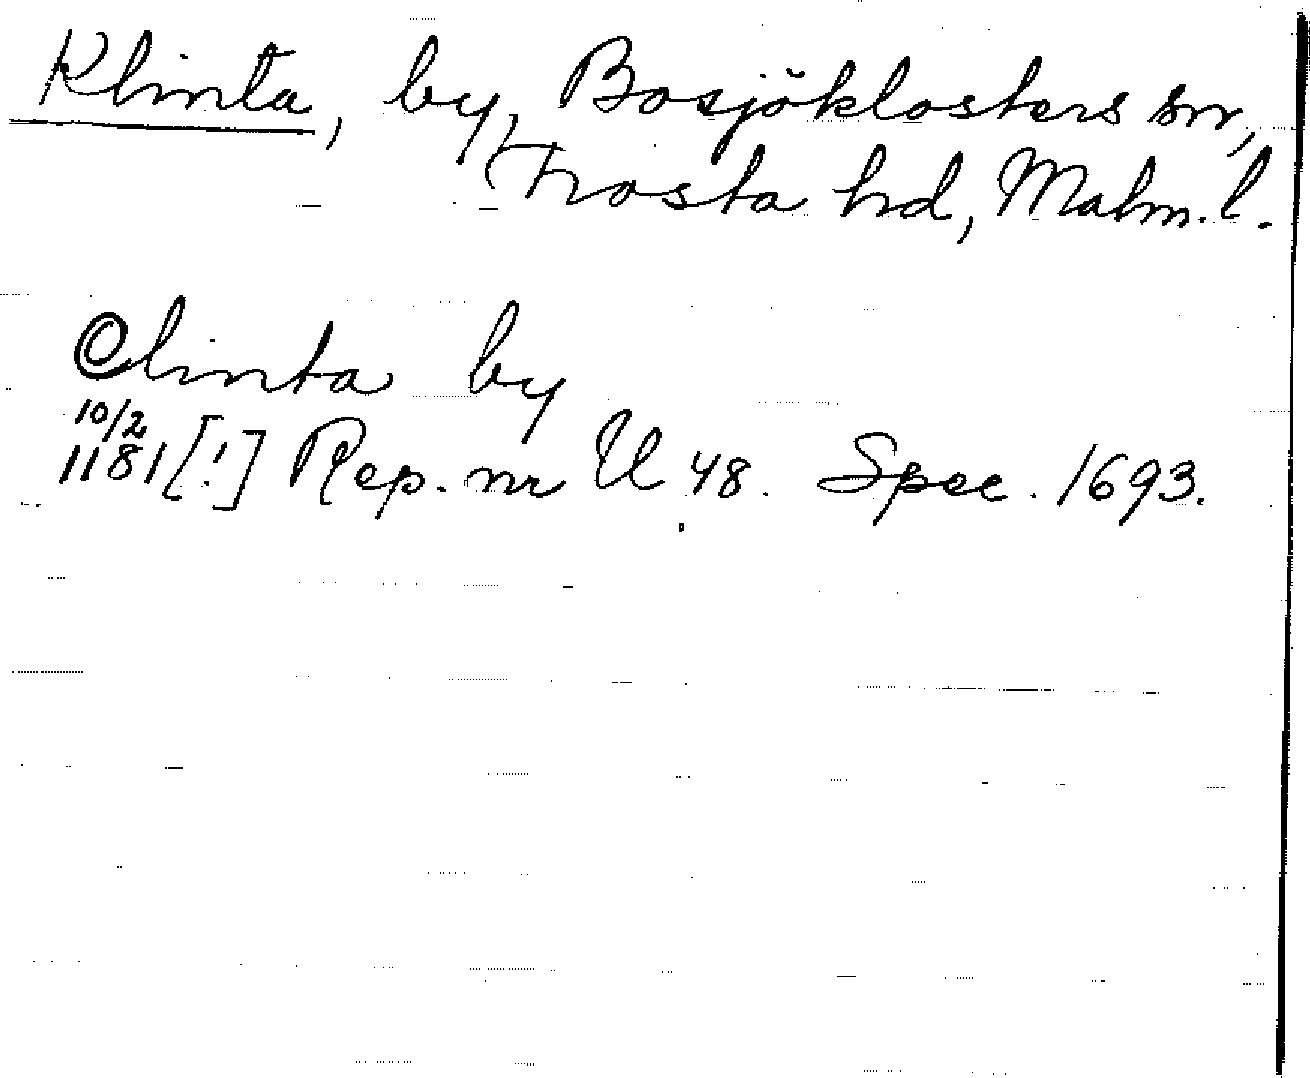 Klinta, by, Bosjöklosters sn,
Frosta hd, Malm. l.
Clinta by
10/2
1181[!] Rep. nr U 48. Spec. 1693.